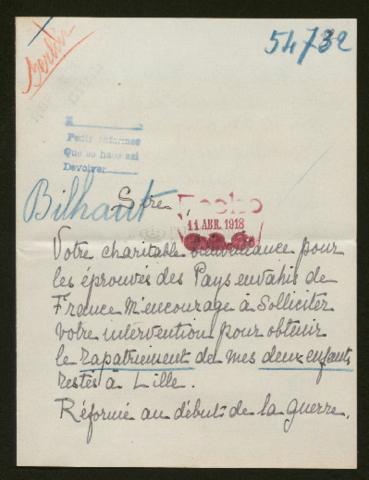 Berlin
54732
Pedir informes
Que se haga así
Devolver
Bilhaut
Sire,
Hecho
11 ABR. 1918
Votre charitable bienveillance pour
les éprouvés des Pays envahis de
France m'encourage à Solliciter
votre intervention pour obtenir
le rapatriement de mes deux enfants
restés à Lille.
Réformé au début de la guerre,